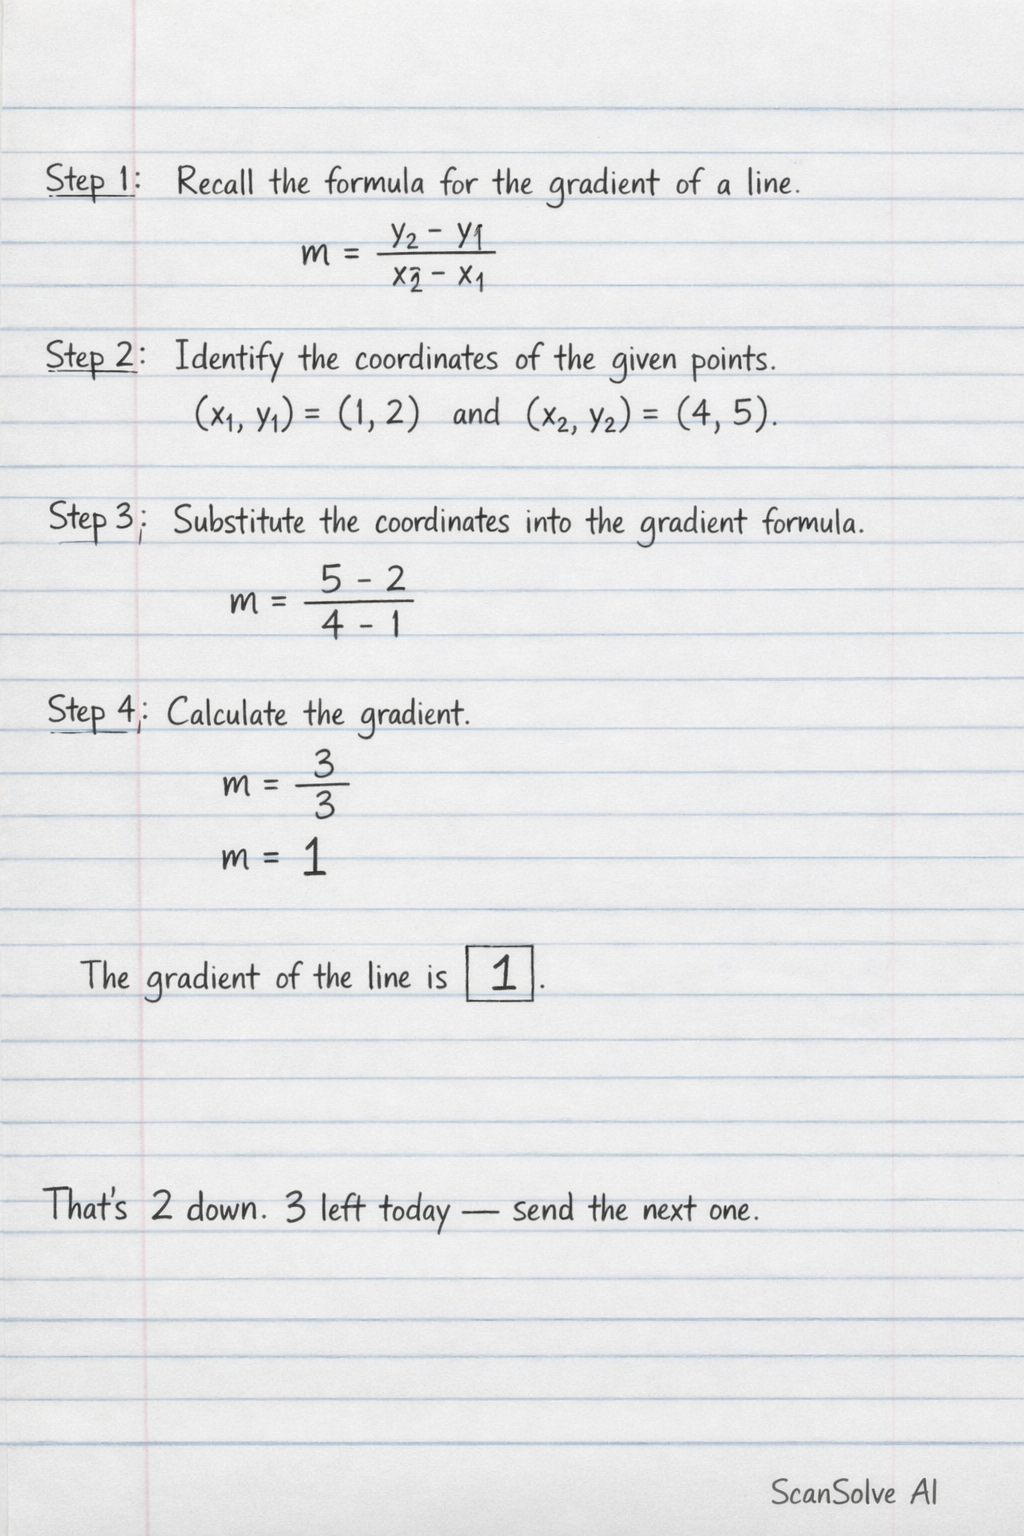 Step 1: Recall the formula for the gradient of a line.
m = (y₂ − y₁) / (x₂ − x₁)
Step 2: Identify the coordinates of the given points.
(x₁, y₁) = (1, 2) and (x₂, y₂) = (4, 5).
Step 3: Substitute the coordinates into the gradient formula.
m = (5 − 2) / (4 − 1)
Step 4: Calculate the gradient.
m = 3 / 3
m = 1
The gradient of the line is 1.
That's 2 down. 3 left today — send the next one.
ScanSolve AI